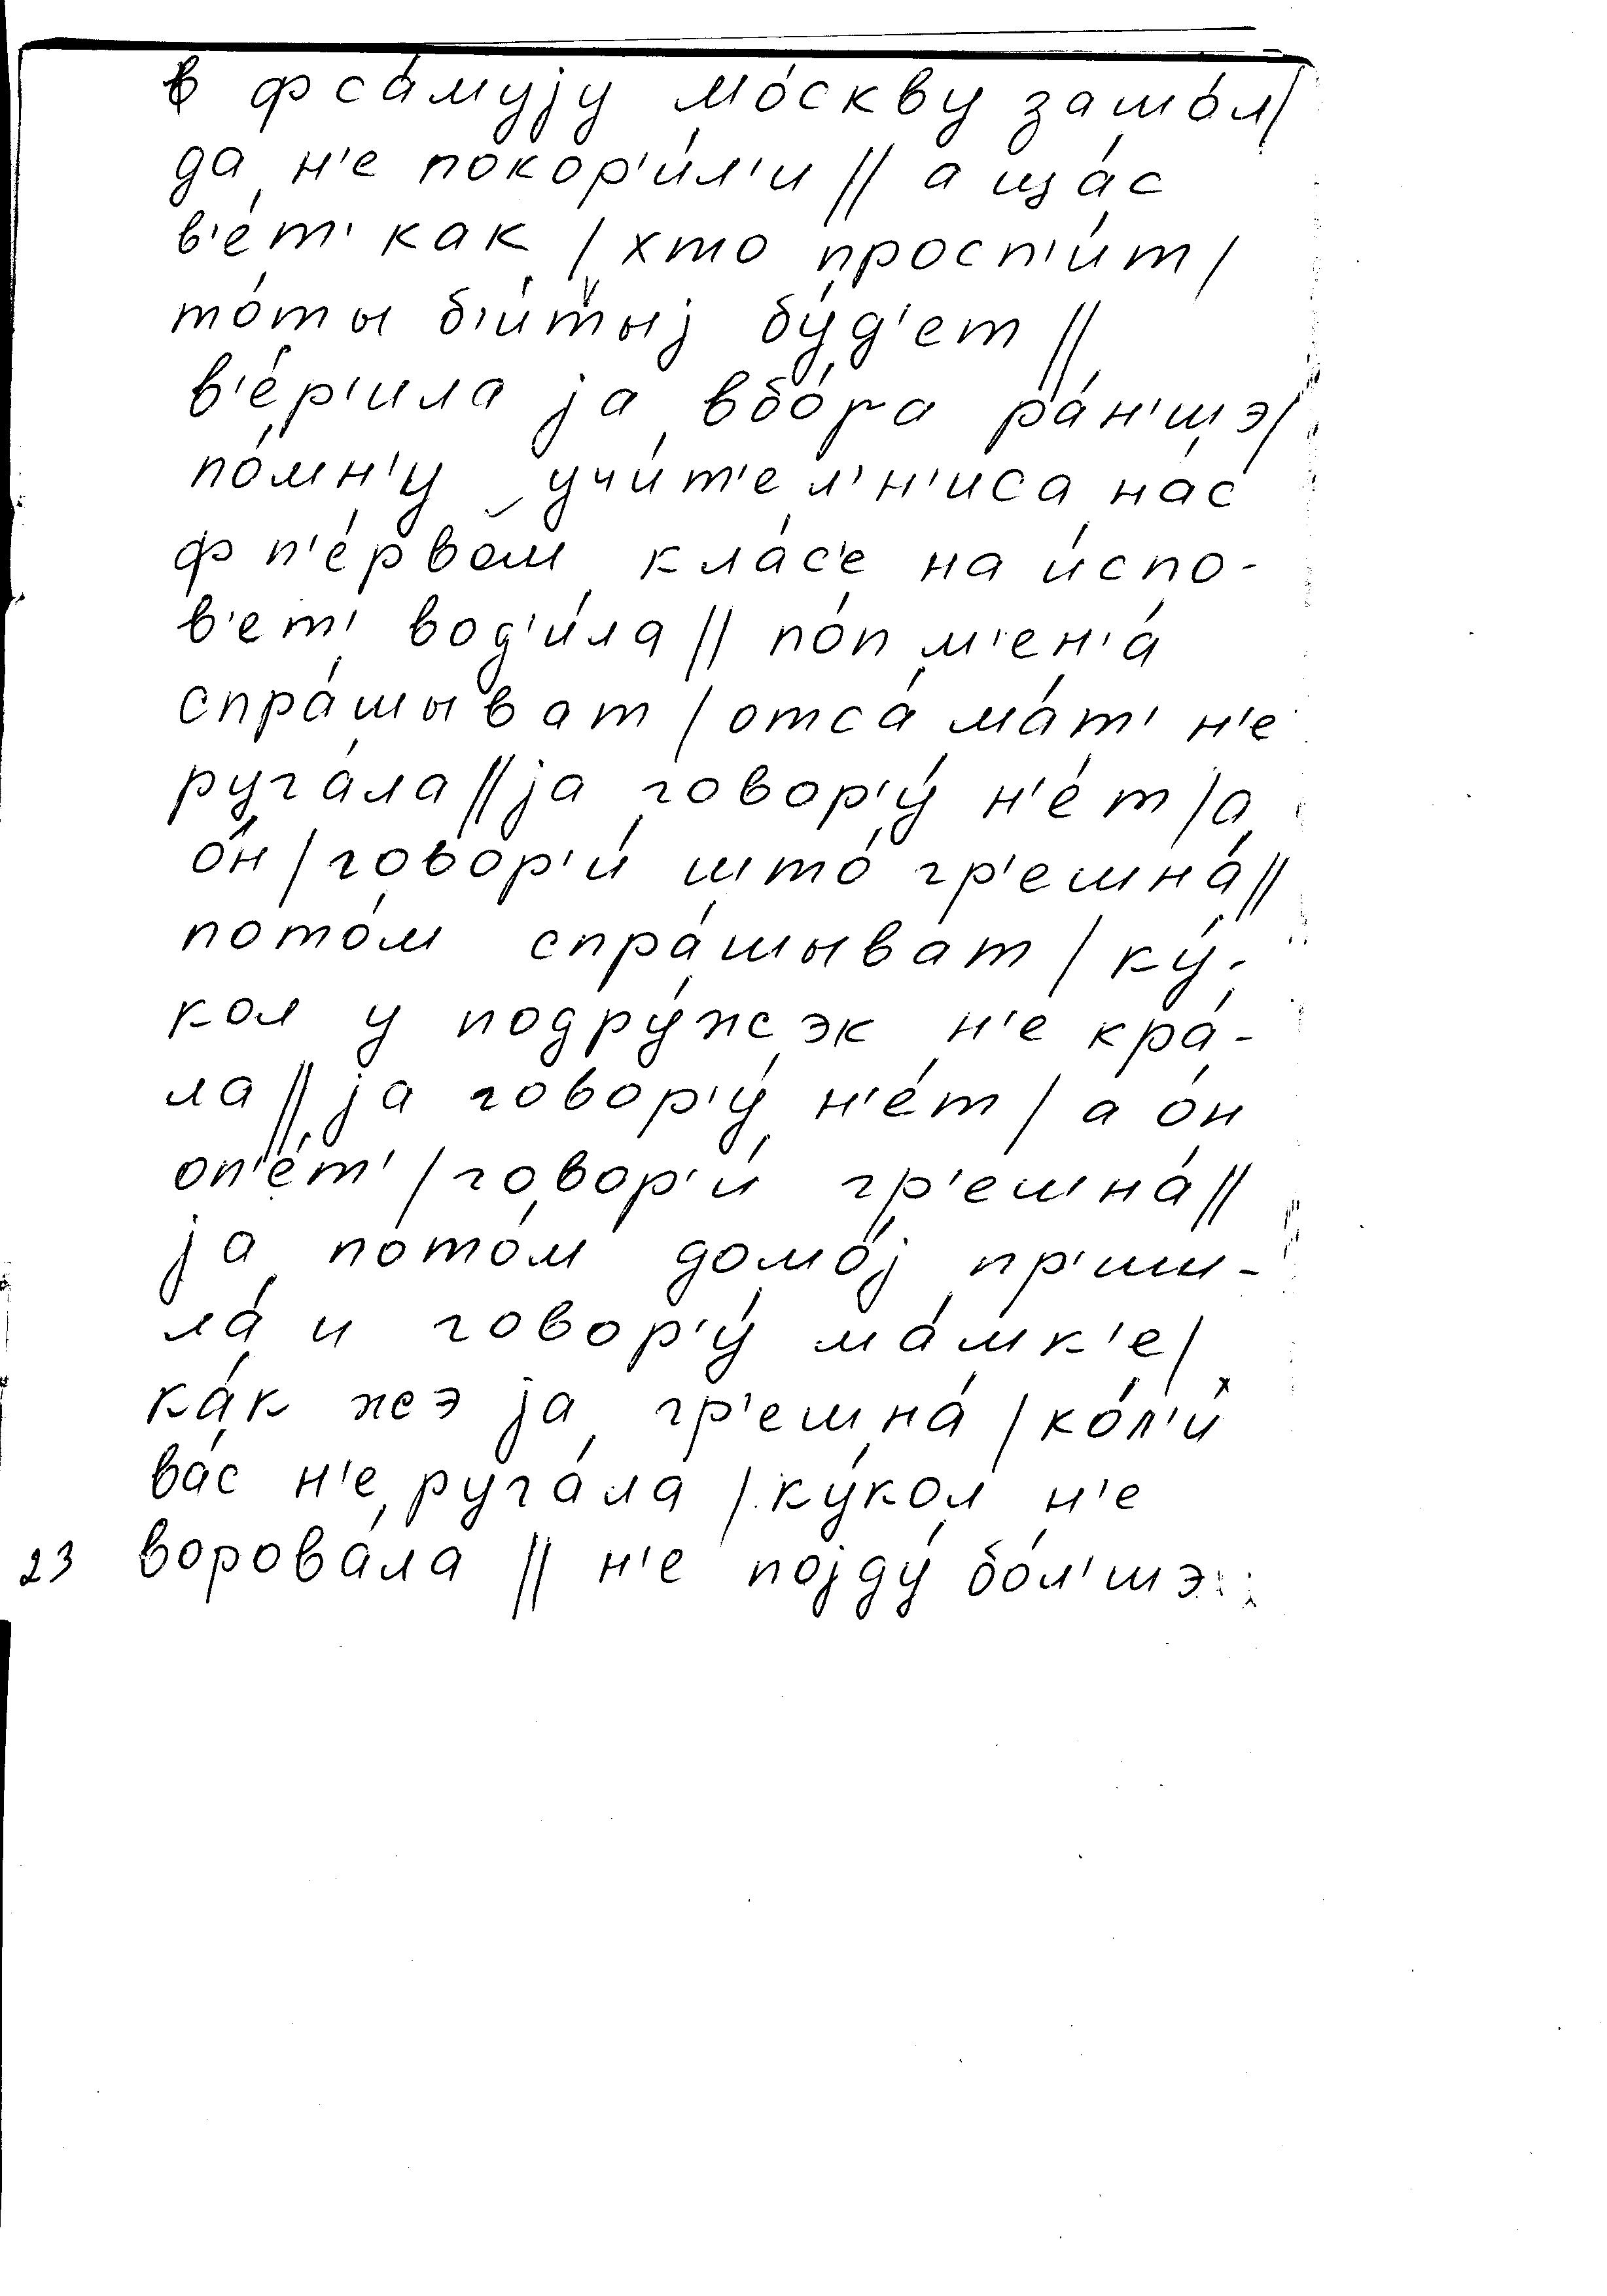 в фса́мујy мо́скву зашо́л/
да н'е покор'и́л'и // а ща́с
в'е́т' как / хто просп'и́т /
то́ты б'и́тыј бу́д'ет //
в'е́р'ила ја вбо́га ра́н'шэ/
по́мн'у учи́т'ел'н'иса на́с
ф п'е́рвом кла́с'е на и́спо-
в'ет' вод'и́ла // по́п м'ен'а́
спра́шыват / отса́ ма́т' н'е
руга́ла // ја говор'у́ н'е́т / а
о́н / говор'и́ што́ гр'ешна́ //
пото́м спра́шыват / ку́-
кол у подру́жэк н'е кра́-
ла // ја говор'у́ н'е́т / а о́н
оп'е́т' / говор'и́ гр'ешна́ //
ја пото́м домо́ј пр'иш-
ла́ и говор'у́ ма́мк'е /
ка́к жэ ја гр'ешна́ / ко́л'и
ва́с н'е руга́ла / ку́кол н'е
23 ворова́ла // н'е појду́ бо́л'шэ